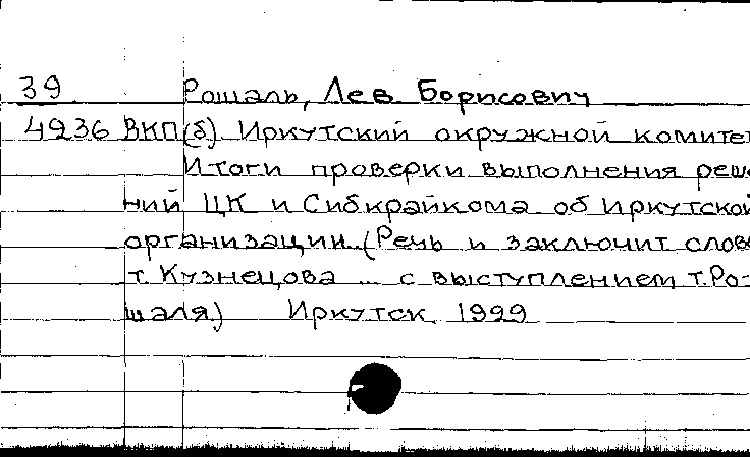 39 Рошаль, Лев Борисович
4936 ВКП(б) Иркутский окружной комитет
Итоги проверки выполнения реше
ний ЦК и Сибкрайкома об Иркутской
организации. (Речь и заключит слово
т. Кузнецова ... с выступлением т. Ро-
шаля) Иркутск 1929